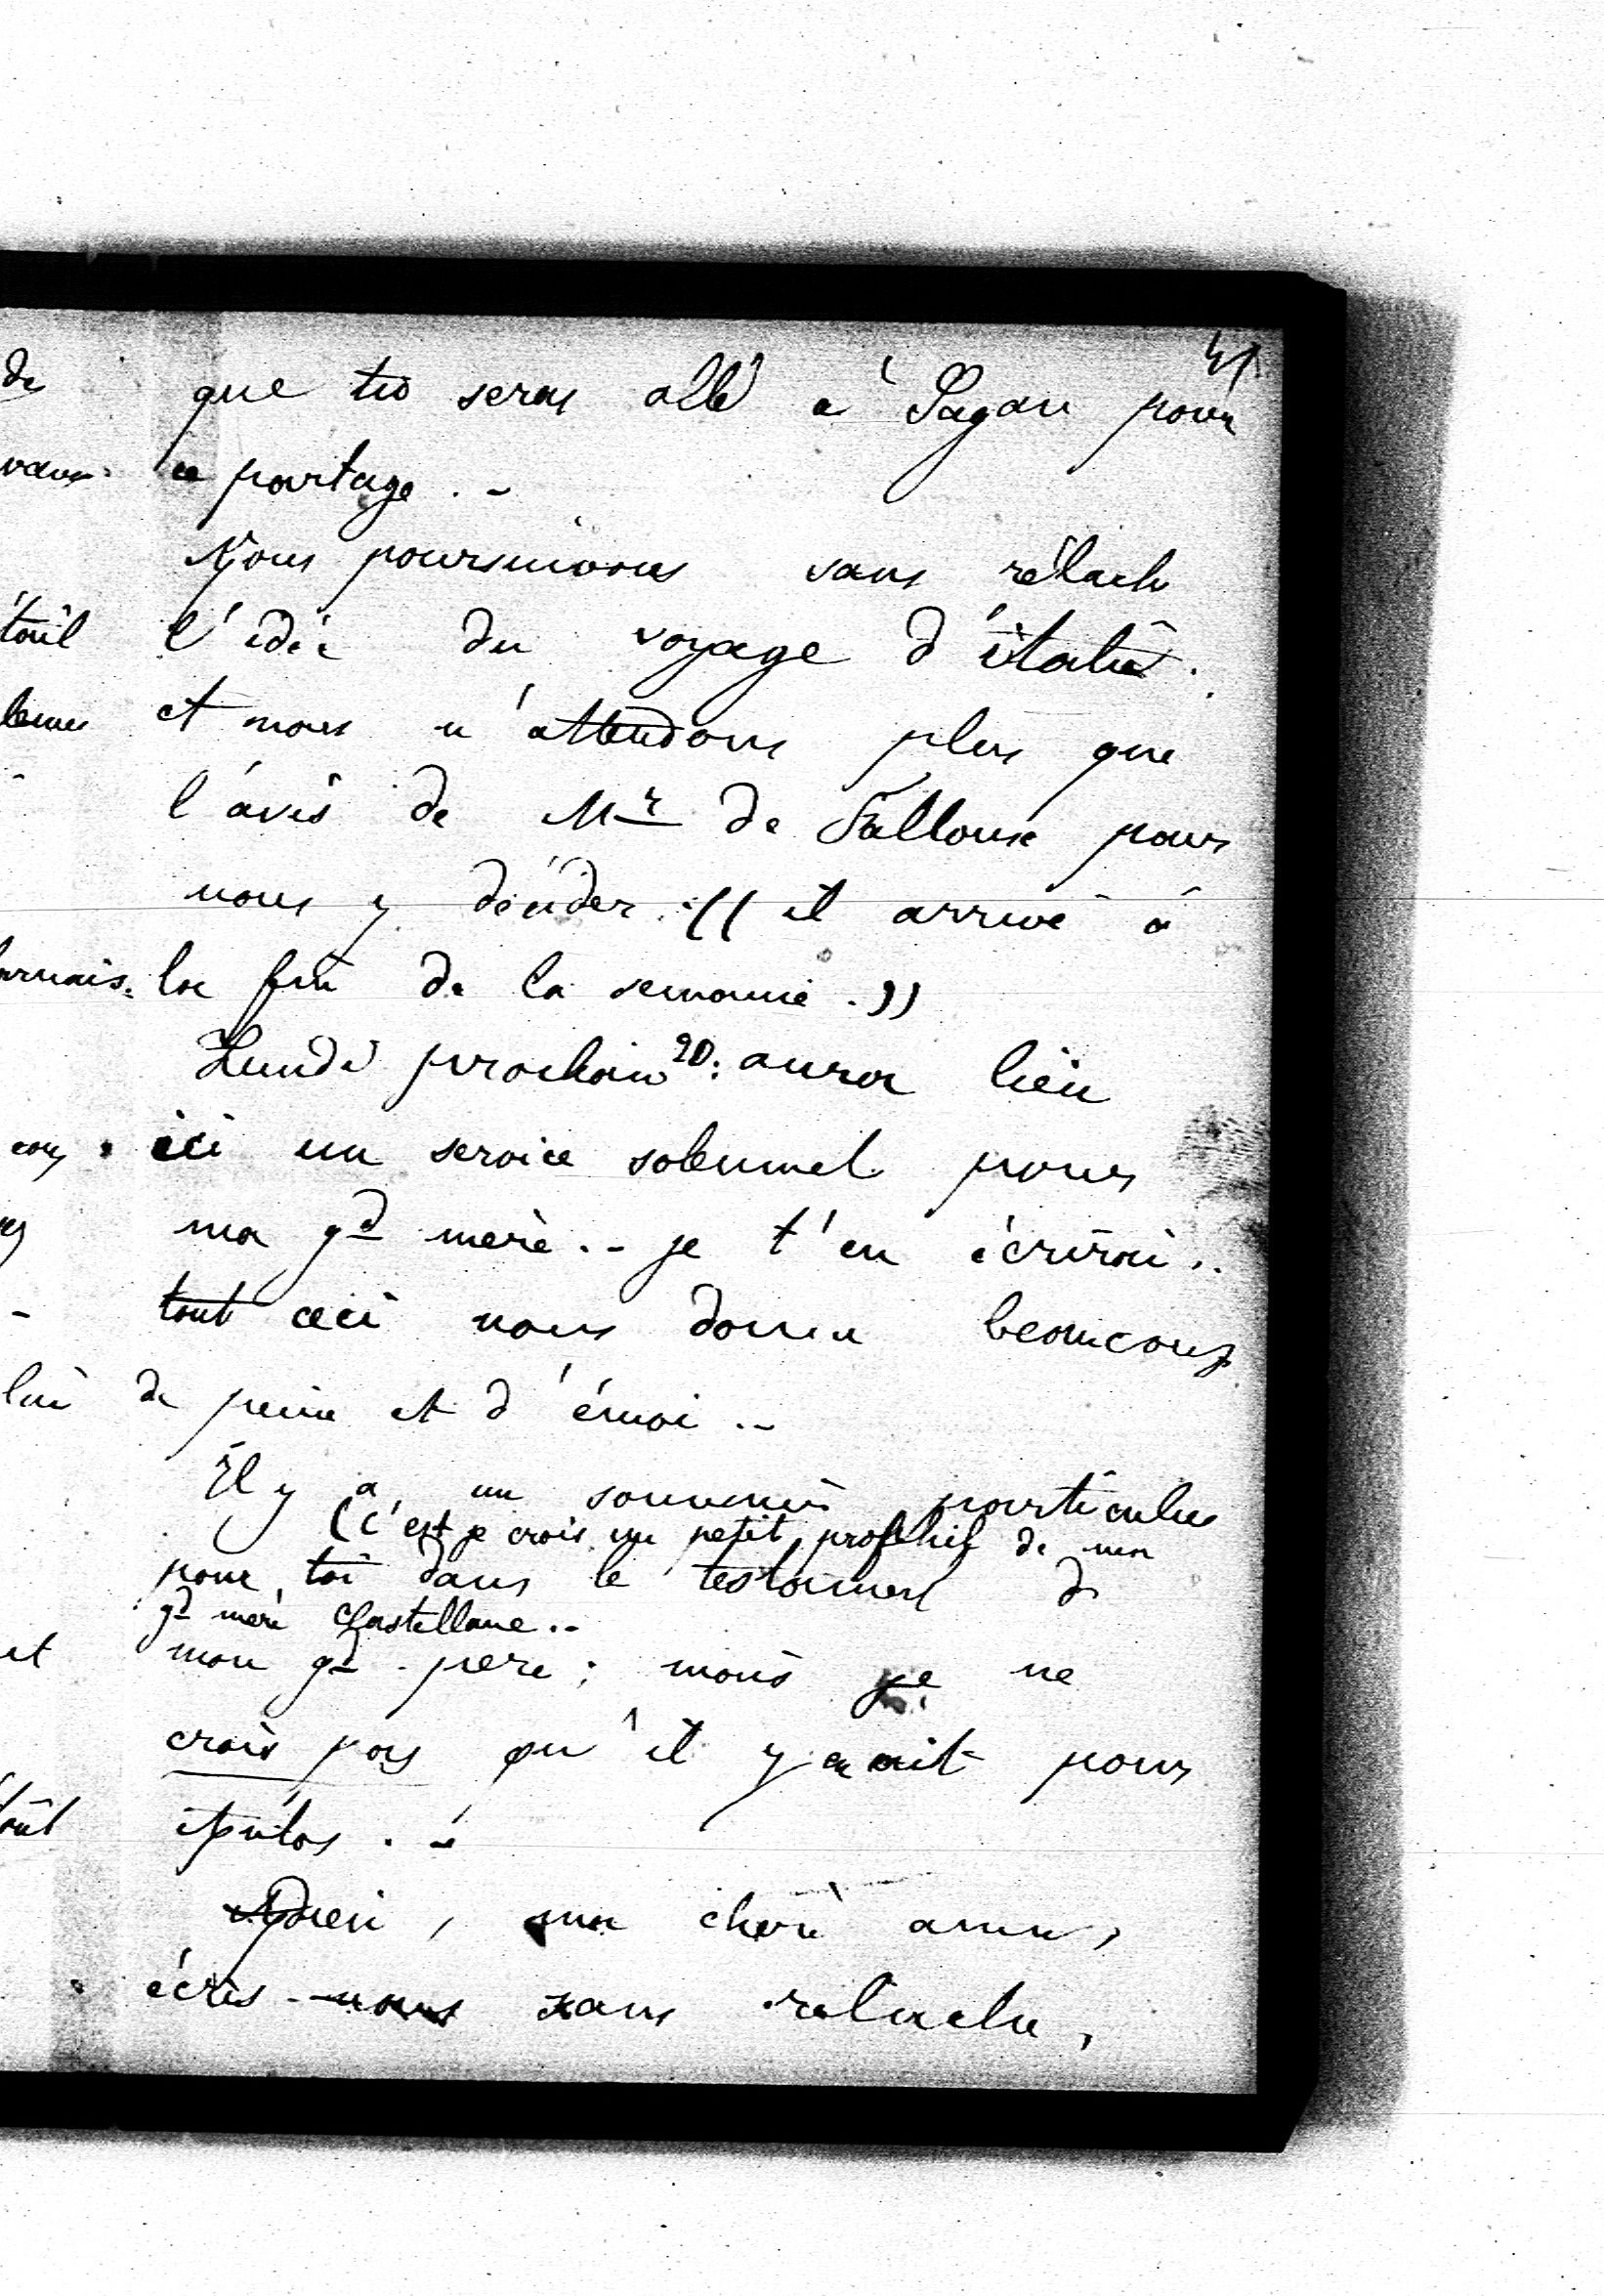 41
que tu seras allé à Sagan pour
ce partage . -
Nous poursuivons sans relache
l'idée du voyage d'italie .
et nous n'attendons plus que
l'avis de Mr de Falloux pour
nous y décider . (( il arrive à
la fin de la semaine . ))
Lundi prochain 20 : aura lieu
ici un service solennel pour
ma gd mère . - je t'en écrirai ..
tout ceci nous donne beaucoup
de peine et d'émoi . -
Il y a un souvenir particulier
(c'est je crois un petit de ma
pour toi dans le testament de
gd mère Castellane . -
mon gd - père : mais je ne
crois pas qu'il y en ait pour
. -
Adieu , mon cher ami ,
écris - nous sans relache ,